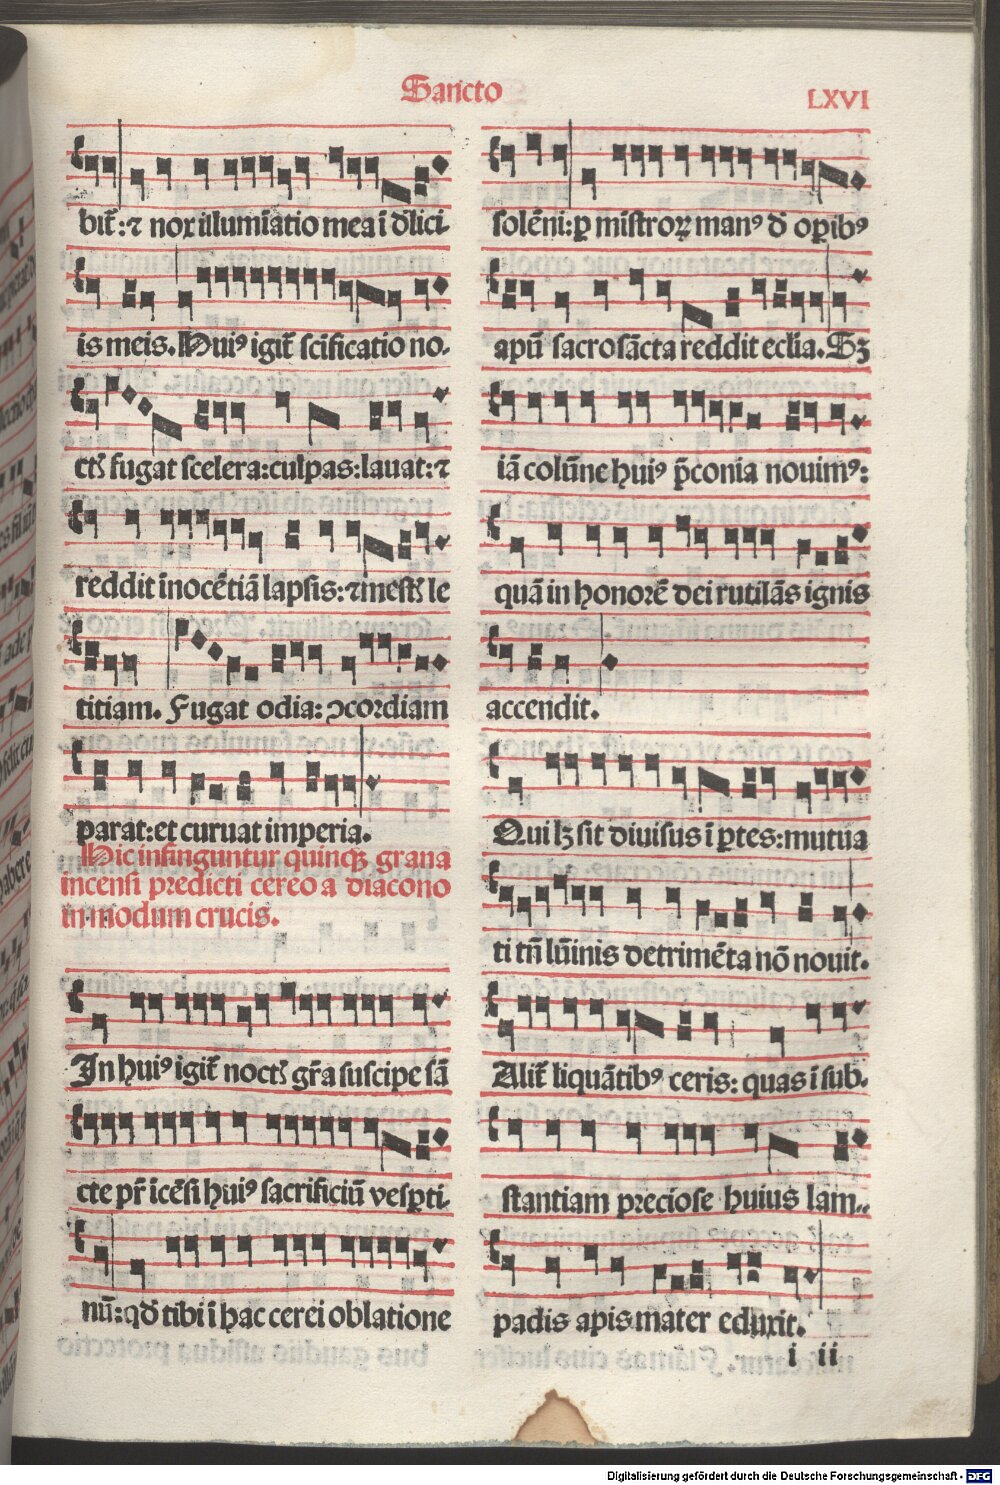 Sancto
LXVI
bit̃:⁊ nox illumĩatio mea ĩ dʼlici-
is meis. Huiꝰ igit̃ scĩficatio no-
ctꝭ fugat scelera:culpas:lauat:⁊
reddit ĩnocẽtiã lapsis:⁊ mestꝭ le
titiam. Fugat odia: ꝯcordiam
parat:et curuat imperia.
Hic infinguntur quinqꝫ grana
incensi predicti cereo a diacono
in modum crucis.
In huiꝰ igit̃ noctꝭ gr̃a suscipe sã
cte pr̃ icẽsi huiꝰ sacrificiũ vesꝑti-
nũ:qđ tibi ĩ hac cerei oblatione
solẽni:ꝑ mĩstroꝝ manꝰ đ oꝑibꝰ
apũ sacrosãcta reddit ecl̃ia. Sꝫ
iã colũne huiꝰ p̃conia nouimꝰ:
quã in honorẽ dei rutilãs ignis
accendit.
Qui lꝫ sit diuisus ĩ ꝑtes:mutua
ti tñ lũinis detrimẽta nõ nouit.
Alit̃ liquãtibꝰ ceris: quas ĩ sub-
stantiam preciose huius lam-
padis apis mater eduxit.
i ii
Digitalisierung gefördert durch die Deutsche Forschungsgemeinschaft - DFG